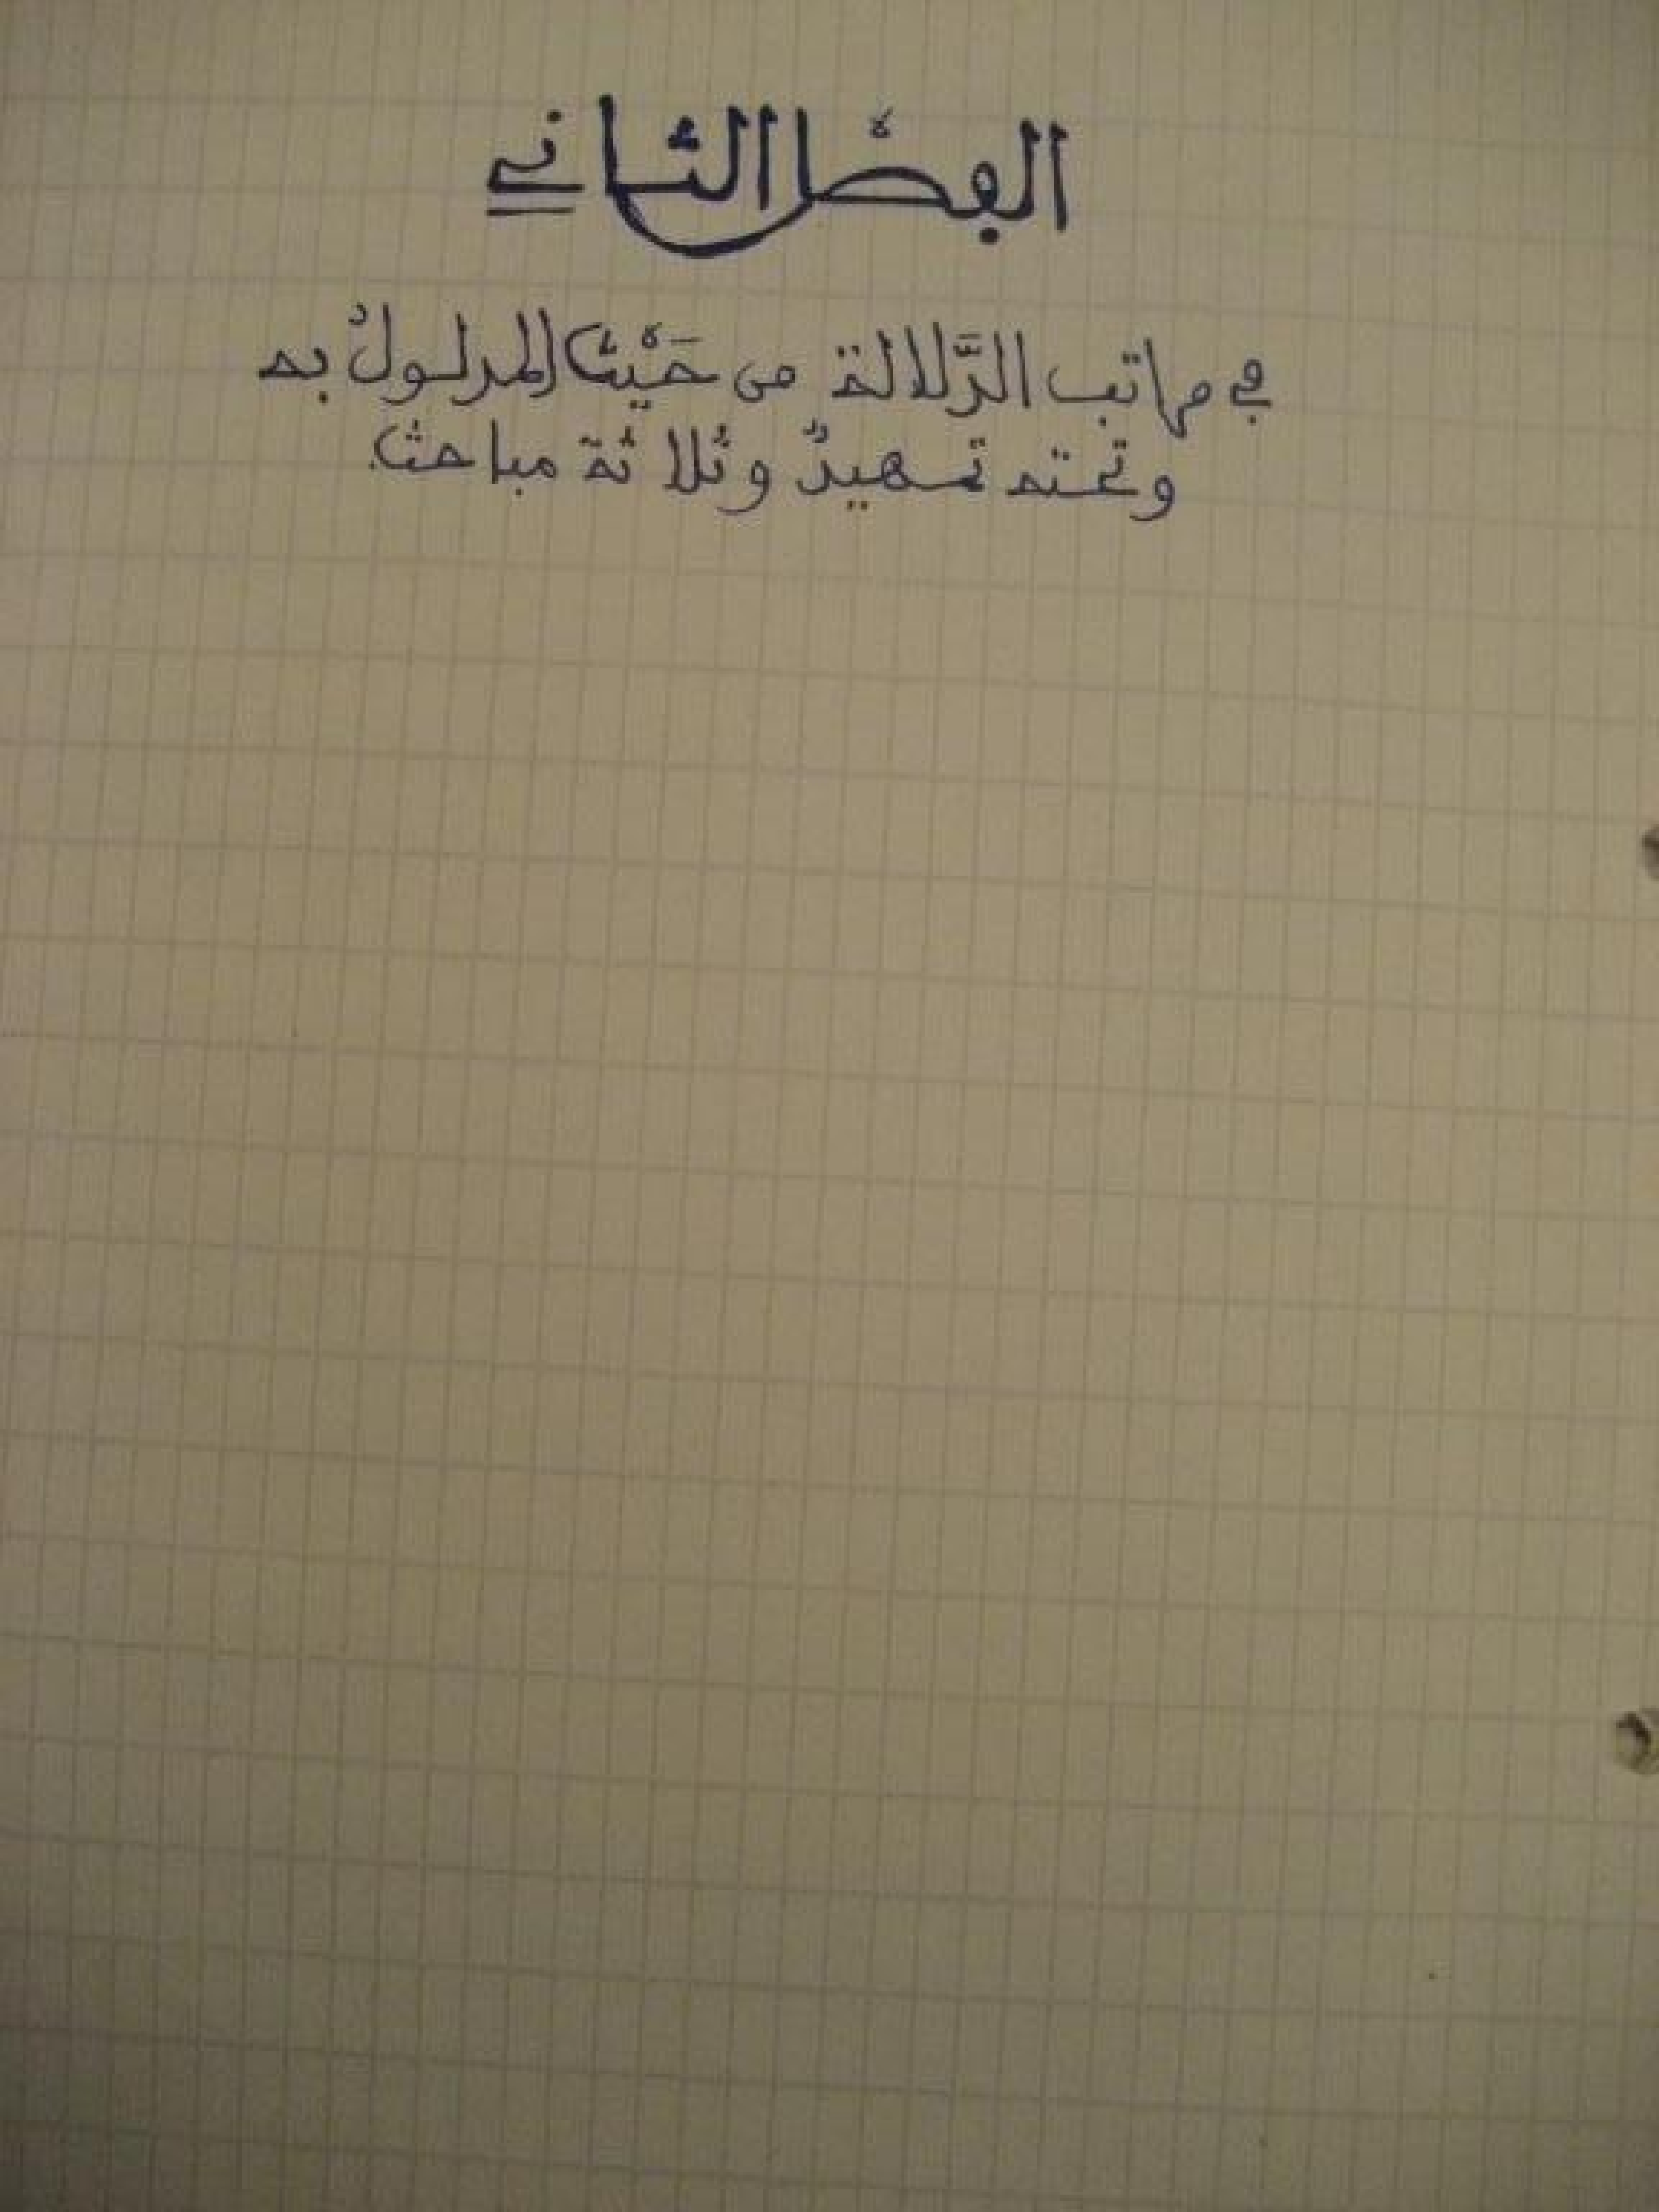 الفصْل الثاني
في مراتب الدَّلالة من حَيْث المدلولُ به
وتحته تمهيدٌ وثلاثة مباحث.